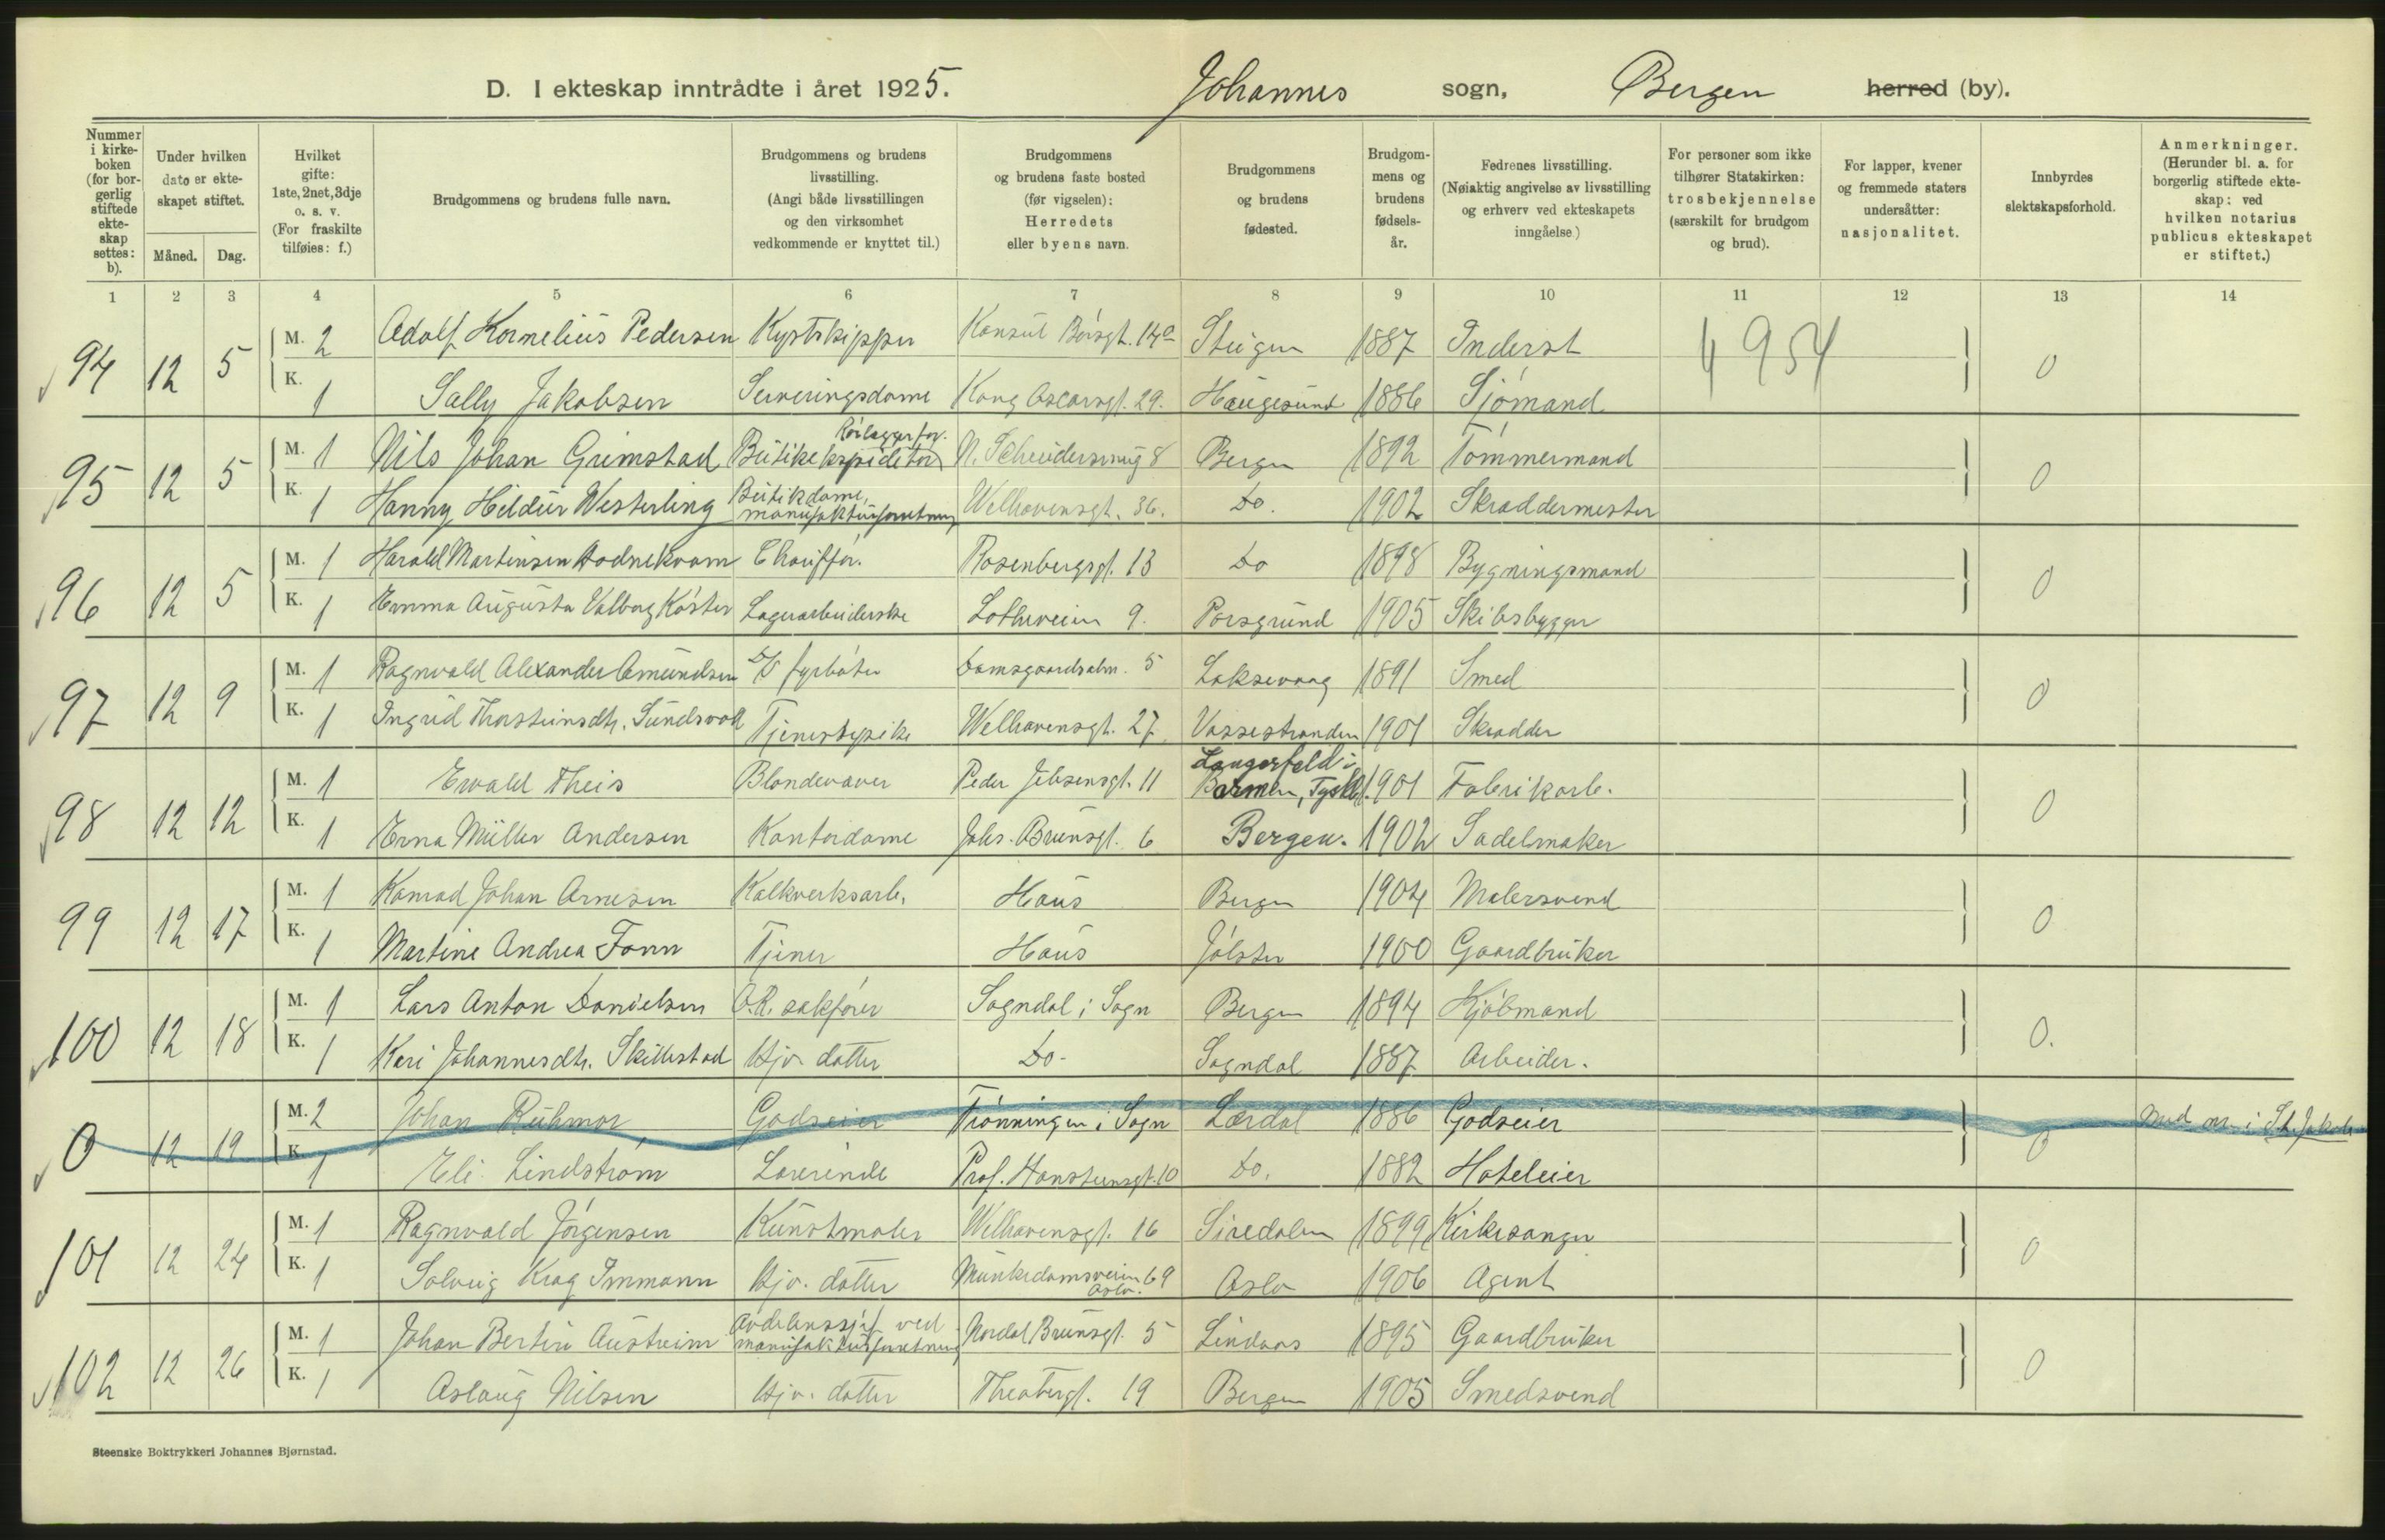 D. I ekteskap inntrådte i året 1925. Johannes sogn, Bergen herred (by).
Nummer i kirkeboken (for borgerlig stiftede ekteskap settes: b).
Under hvilken dato er ekteskapet stiftet.
Måned. Dag.
Hvilket gifte: 1ste, 2net, 3dje o. s. v. (For fraskilte tilføies: f.)
Brudgommens og brudens fulle navn.
Brudgommens og brudens livsstilling. (Angi både livsstillingen og den virksomhet vedkommende er knyttet til.)
Brudgommens og brudens faste bosted (før vigselen): Herredets eller byens navn.
Brudgommens og brudens fødested.
Brudgommens og brudens fødselsår.
Fedrenes livsstilling. (Nøiaktig angivelse av livsstilling og erhverv ved ekteskapets inngåelse)
For personer som ikke tilhører Statskirken: trosbekjennelse (særskilt for brudgom og brud).
For lapper, kvener og fremmede staters undersåtter: nasjonalitet.
Innbyrdes slektskapsforhold.
Anmerkninger. (Herunder bl. a. for borgerlig stiftede ekteskap: ved hvilken notarius publicus ekteskapet er stiftet.)
1 2 3 4 5 6 7 8 9 10 11 12 13 14
94 12 5 M. 2 Adolf Kornelius Pedersen Kystskipper Konsul Børsgt. 14a Steigen 1887 Inderst 4954 0
K. 1 Sally Jakobsen Serveringsdame Kong Oscarsgt. 29. Haugesund 1886 Sjømand
95 12 5 M. 1 Nils Johan Grimstad Rørlæggerfor. Butikekspeditør 8 Bergen 1892 Tømmermand 0
K. 1 Hanny Hildur Westerling Butikdame, manufakturforretning Welhavensgt. 36. Do. 1902 Skræddermester
96 12 5 M. 1 Harald Martinsen Hodnekvam Chauffør. Rosenbergsgt. 13 Do 1898 Bygningsmand 0
K. 1 Emma Augusta Valborg Køster Lagerarbeiderske Lotheveien 9. Porsgrund 1905 Skibsbygger
97 12 9 M. 1 Ragnvald Alexander Amundsen D/S fyrbøter Damsgaardsalm. 5 Laksevaag 1891 Smed 0
K. 1 Ingrid Thorsteinsdtr. Sundsvoll Tjenestepike Welhavensgt. 27 Vossestranden 1901 Skrædder
98 12 12 M. 1 Ewald Theis Blondevæver Peder Jebsensgt. 11 Langerfeld i Barmen, Tyskl. 1901 Fabrikarb. 0
K. 1 Erna Müller Andersen Kontordame Johs. Brunsgt. 6 Bergen. 1902 Sadelmaker
99 12 17 M. 1 Konrad Johan Arnesen Kalkverksarb. Haus Bergen 1904 Malersvend 0
K. 1 Martine Andrea Fonn Tjener Haus Jølster 1900 Gaardbruker
100 12 18 M. 1 Lars Anton Danielsen O.R. sakfører Sogndal i Sogn Bergen 1894 Kjøbmand 0.
K. 1 Kari Johannesdtr. Skillestad Hjv. datter Do. Sogndal 1887 Arbeider.
0 12 19 M. 2 Johan Godseier Trønningen i Sogn Lærdal 1886 Godseier 0 i St. Jakob
K. 1 Eli Lindstrøm Lærerinde Prof. Hansteensgt. 10 Do. 1882 Hoteleier
101 12 24 M. 1 Ragnvald Jørgensen Kunstmaler Welhavensgt. 16 Siredalen 1899 Kirkesanger 0
K. 1 Solveig Krag Immann Hjv. datter Munkedamsveien 69 Oslo. Oslo 1906 Agent
102 12 26 M. 1 Johan Bertin Austrheim Avdelingssjef ved manufakturforretning Nordal Brunsgt. 5 Lindaas 1895 Gaardbruker 0
K. 1 Aslaug Nilsen Hjv. datter Theatergt. 19 Bergen 1905 Smedsvend
Steenske Boktrykkeri Johannes Bjørnstad.